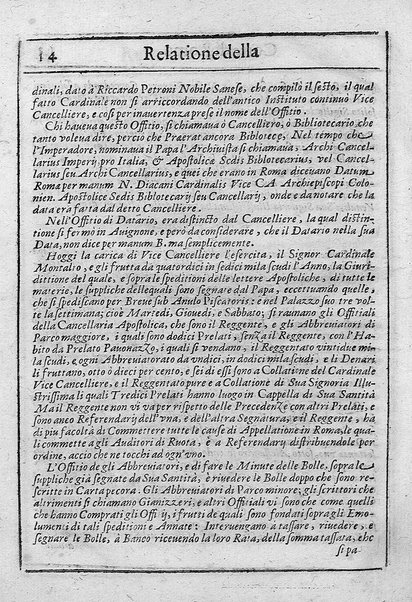 14 Relatione della
dinali, dato à Riccardo Petroni Nobile Sanese, che compilò il sesto, il qual
fatto Cardinale non si arriccordando dell'antico Instituto continuò Vice
Cancelliere, e così per inauertenza prese il nome dell'Offitio.
Chi haueua questo Offitio, si chiamaua ò Cancelliero, ò Bibliotecario che
tanto voleua dire, perciò che Praerat ancora Bibliotecę, Nel tempo che
l'Imperadore, nominaua il Papa l'Archiuista si chiamaua, Archi Cancel-
larius Imperij pro Italia, & Apostolice Sedis Bibliotecarius, vel Cancel-
larius seu Archi Cancellarius, e quei che erano in Roma diceuano Datum
Roma per manum N. Diacani Cardinalis Vice CA Archiepiscopi Colo-
nien. Apostolice Sedis Bibliotecarij seu Cancellarij, onde è da notare che la
data era fatta dal detto Cancelliere.
Nell'Offitio di Datario, era distinto dal Cancelliere, la qual distin-
tione si fermò in Auignone, e però da considerare, che il Datario nella sua
Data, non dice per manum B. ma semplicemente.
Hoggi la carica di Vice Cancelliere l'esercita, il Signor Cardinale
Montalto, e gli frutta da quatordici in sedici mila scudi l'Anno, la Giuri-
dittione del quale, e sopra le speditioni delle lettere Apostoliche, di tutte le
materie, le suppliche delle quali sono segnate dal Papa, eccettuando quelle,
che si spediscano per Breue sub Anulo Piscatoris: e nel Palazzo suo tre vol-
te la settimana; cioè Martedi, Giouedi, e Sabbato; si raunano gli Offitiali
della Cancellaria Apostolica, che sono il Reggente, e gli Abbreuiatori di
Parco maggiore, i quali sono dodici Prelati, senza il Reggente, con l'Ha-
bito da Prelato Pauonazzo, i quali si vendano, il Reggentato vintidue mi-
la scudi, e ogni Abbreuiatorato da vndici, in dodici mila scudi, e li Denari
li fruttano, otto ò dieci per cento, e sei di essi sono a Collatione del Cardinale
Vice Cancelliere, e il Reggentato pure e a Collatione di Sua Signoria Illu-
strissima li quali Tredici Prelati hanno luogo in Cappella di Sua Santità
Ma il Reggente non vi va per rispetto delle Precedenze con altri Prelati, e
sono anco Referendarij dell'vna, e dell'altra Segnatura, e il Reggente, hà
di più facoltà di Commettere tutte le cause di Appellatione in Roma, le qua-
li commette agli Auditori di Ruota, è a Referendarij distribuendole per
ordine, acciò che ne tocchi ad ogn'vno.
L'Offitio de gli Abbreuiatori, e di fare le Minute delle Bolle, sopra le
suppliche già segnate da Sua Santità, è riuedere le Bolle doppo che sono re-
scritte in Carta pecora: Gli Abbreuiatori di Parco minore; gli scrittori che
altrimenti si chiamano Gianizzeri e altri Officiali vi sono che come quelli
che hanno Comprati gli Offitij, i frutti de quali sono fondati sopra gli Emo-
lumenti di tali speditioni e Annate: Interuengano à tassare, riuedere, e
segnare le Bolle, à Banco riceuendo la loro Rata, della somma tassata, che
si pa-